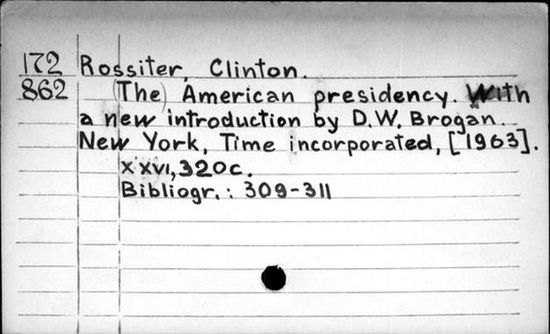 172 Rossiter, Clinton.
862 (The) American presidency. With
a new introduction by D.W. Brogan.
New York, Time incorporated, [1963].
XXVI, 320c.
Bibliogr.: 309-311